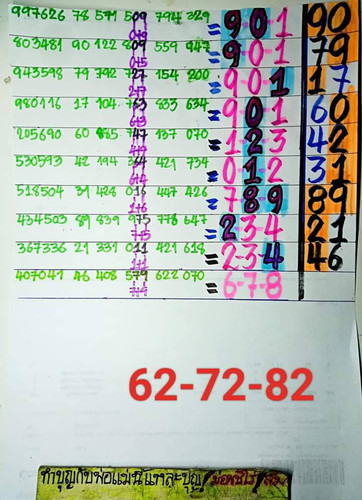 997626 78 571 509 794 329 = 9-0-1 90
803481 90 122 809 559 947 = 9-0-1 79
943598 79 792 727 154 200 = 9-0-1 17
980116 17 104 763 833 634 = 9-0-1 60
205690 60 885 747 137 070 = 1-2-3 42
530593 42 194 364 421 734 = 0-1-2 31
518504 31 428 016 447 426 = 7-8-9 89
434503 89 839 975 778 647 = 2-3-4 21
367336 21 331 011 421 618 = 2-3-4 46
407041 46 408 579 622 070 = 6-7-8
62-72-82
ทำบุญกับพ่อแม่นี้แหละบุญ